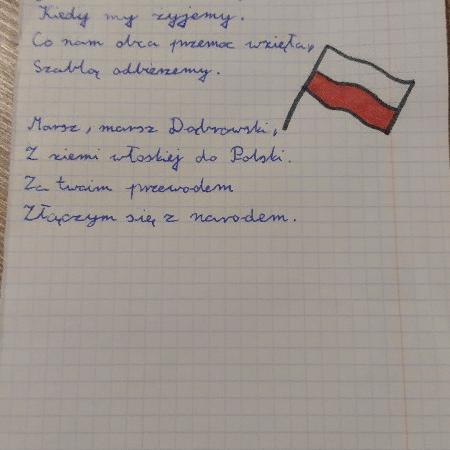 Kiedy my żyjemy.
Co nam obca przemoc wzięła,
Szablą odbierzemy.
Marsz, marsz Dąbrowski,
Z ziemi włoskiej do Polski.
Za twoim przewodem
Złączym się z narodem.